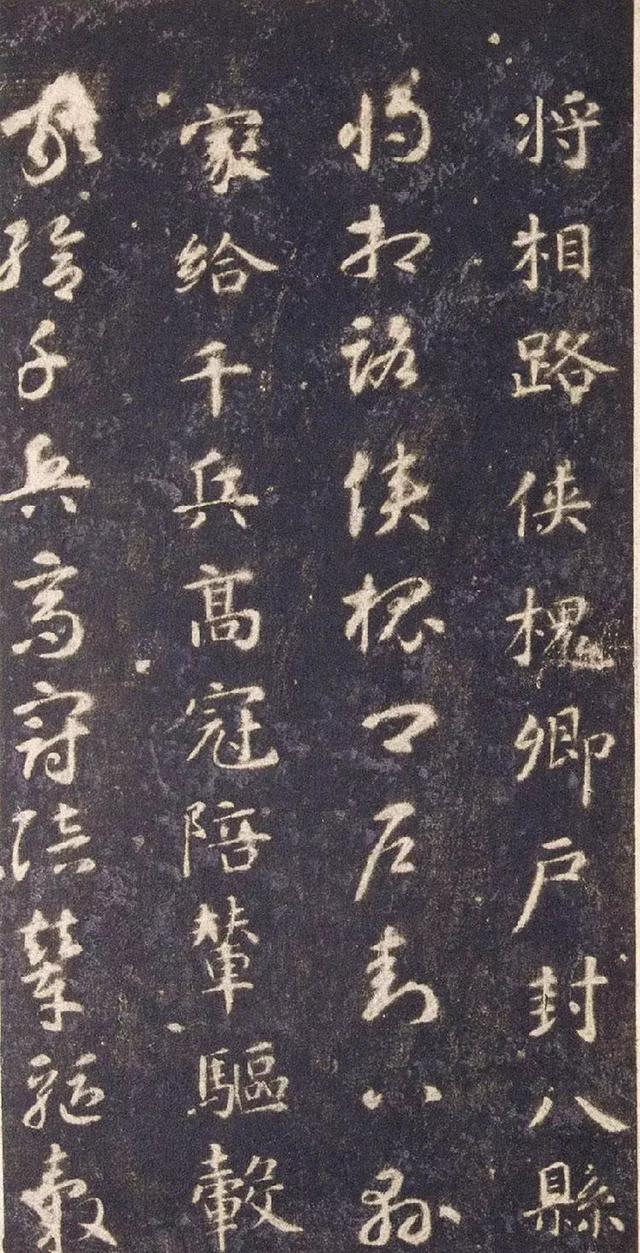 将相路侠槐卿户封八縣
将相路侠槐卿户封八縣
家給千兵高冠陪輦驅轂
家給千兵高冠陪輦驅轂